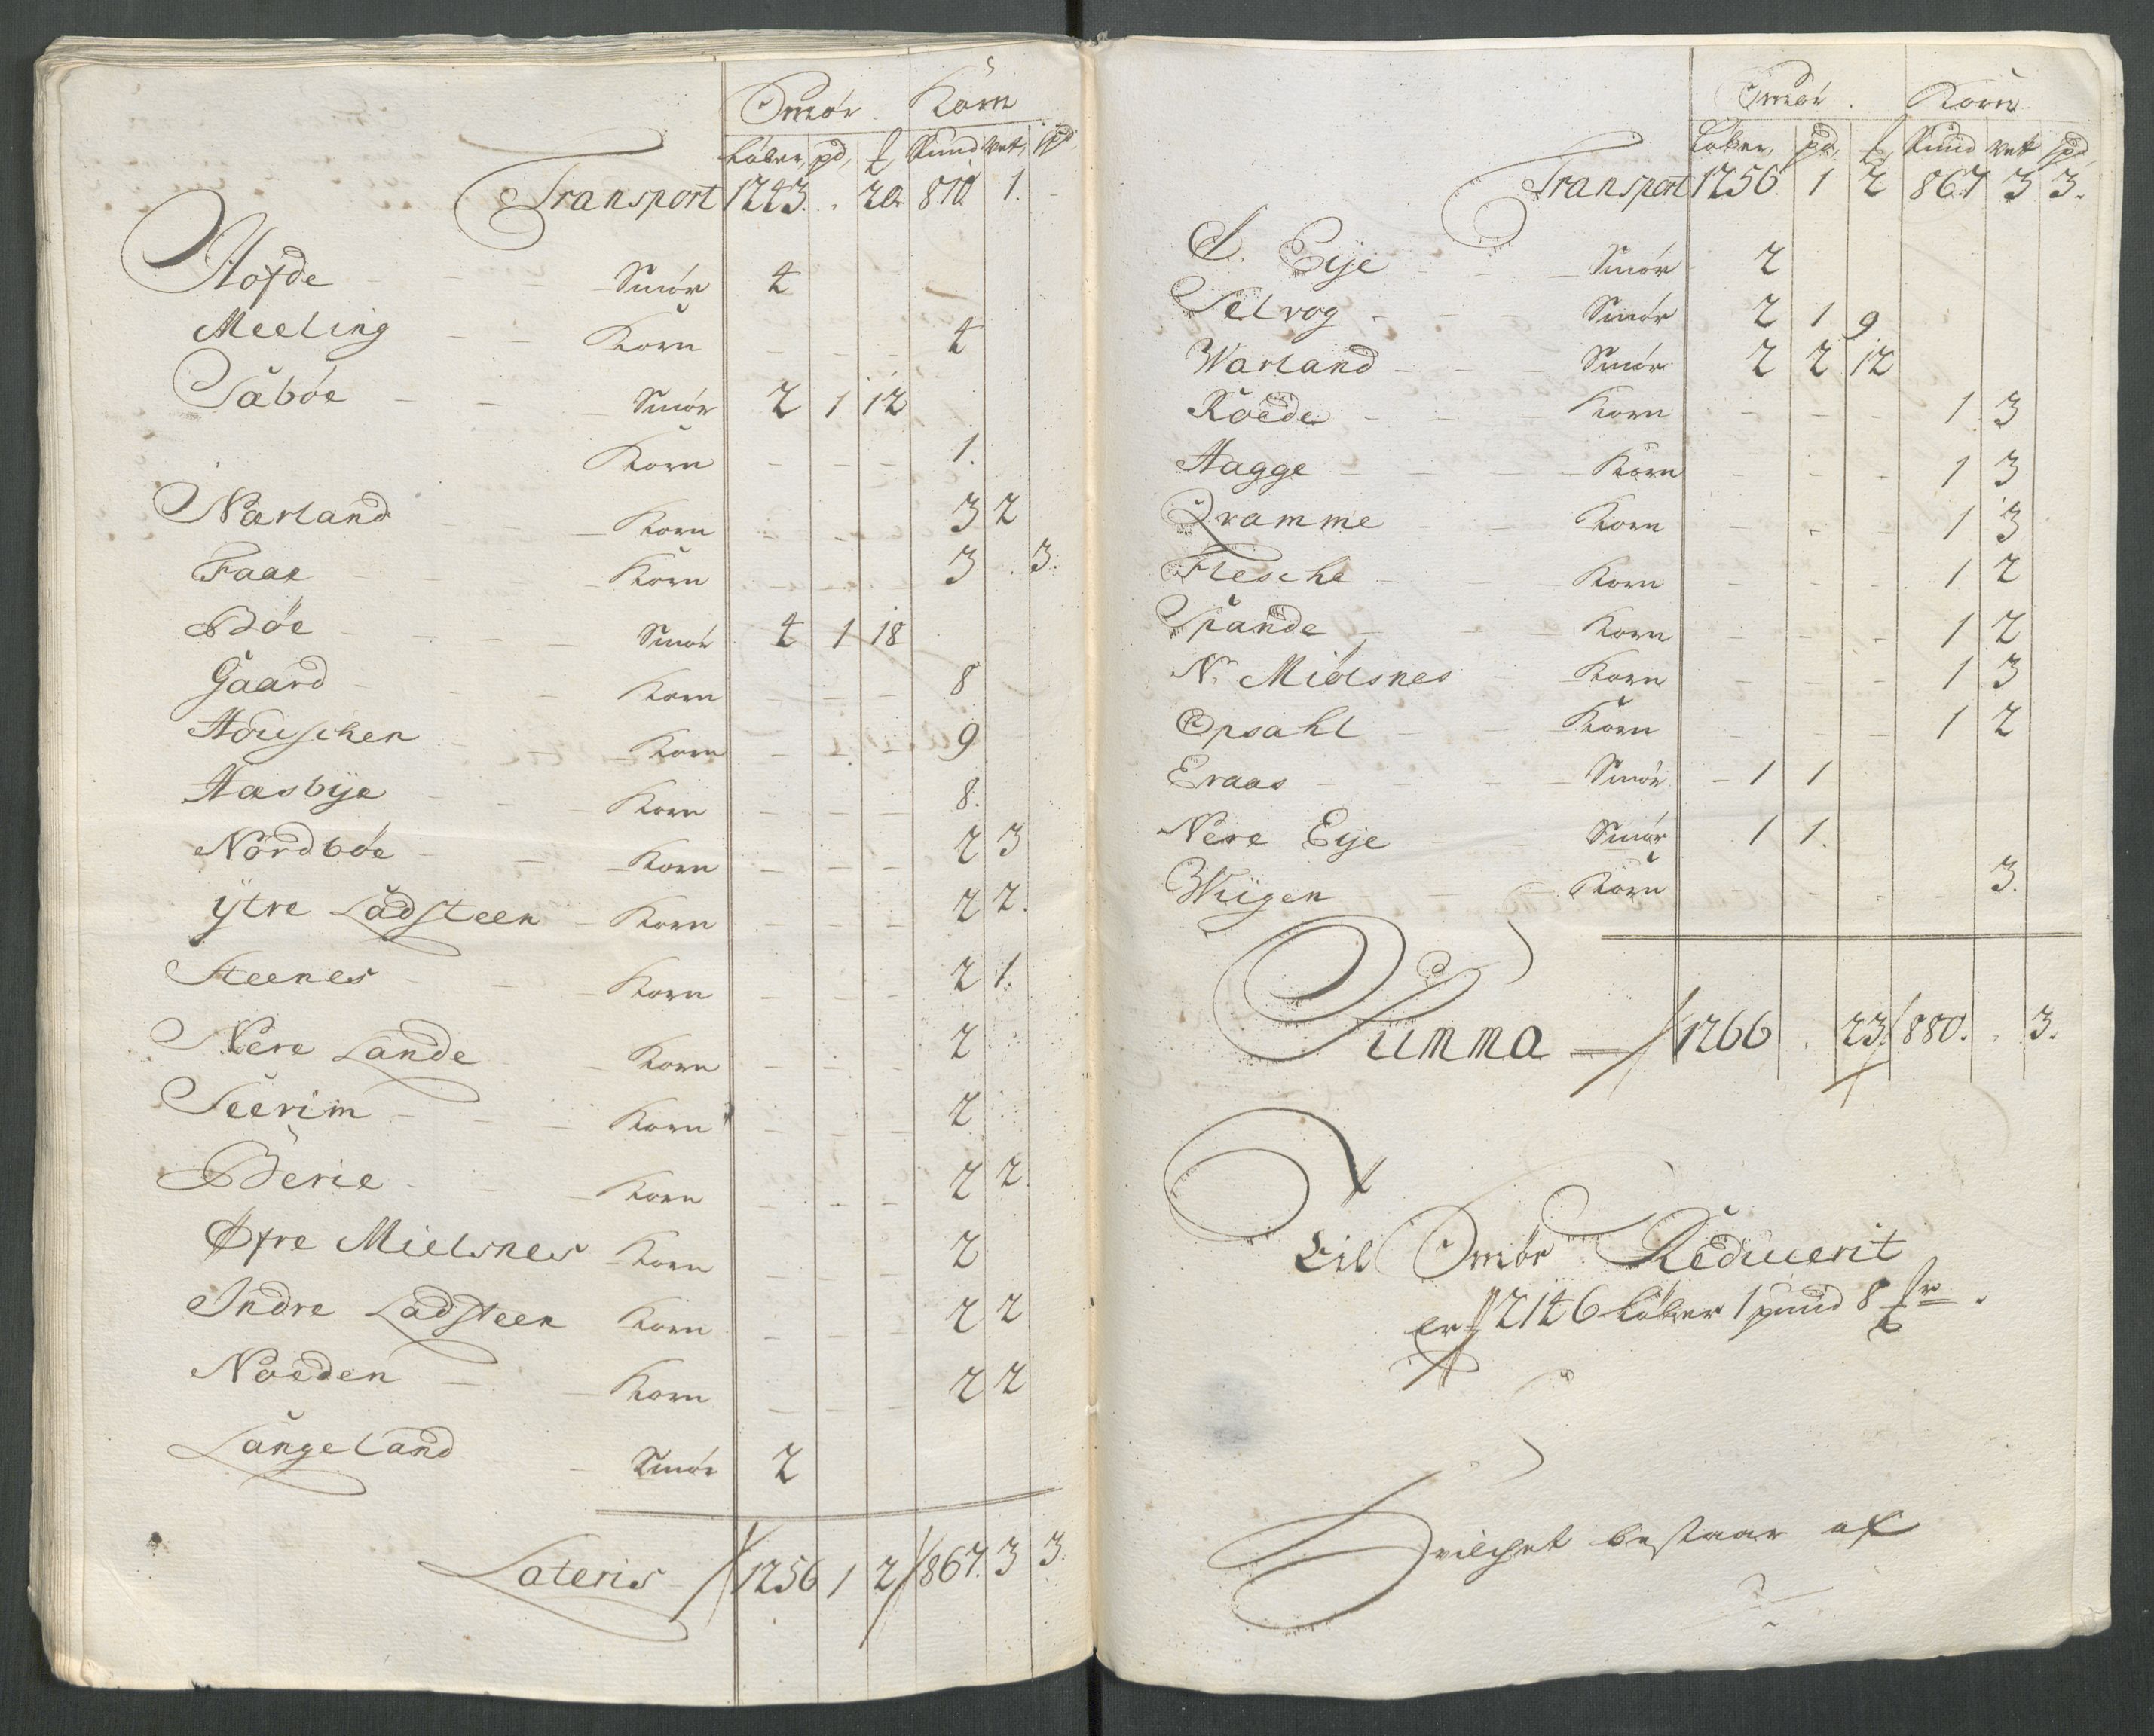 Smør. Korn
Løber, pd, ℔ Pund vet, Spd
Transport 1243. . 20 810 1. -
Hofde - - - Smør 4
Meeling - - Korn - - - 4
Säbøe - - - Smør 2 1 12
Korn - - - 1.
Nærland - Korn - - - 3 2
Faae - - Korn 3 . 3.
Bøe - - - Smør 4 1 18
Gaard - - - Korn - - - 8
Houschen - Korn - - - 9
Aasbÿe - - Korn - - - 8.
Nordbøe - - Korn - - - 2 3
ÿtre Ladsteen - Korn - - - 2 2.
Steenes - - Korn - - - 2 1.
Nere Lande - Korn - - - 2
Seerim - - - Korn - - - 2
Berie - - - Korn - - - 2 2.
Øfre Mielsnes - Korn - - - 2
Indre Ladsteen Korn - - - 2 2
Noeden - - Korn - - - 2 2
Langeland - Smør 2
Lateris - 1256 1 2 867. 3 3.
Smør. Korn
Løber, pd, ℔ Pund vet Spd
Transport 1256. 1 2 867 3 3.
S. Eÿe - - - Smør 2
Selvog - - - Smør 2 1 9
Warland - - - Smør 2 2 12
Roede - - - Korn - - - 1 3
Hagge - - - Korn - - - 1 3
Qvamme - - Korn - - - 1 3
Flesche - - Korn - - - 1 2
Spande - - - Korn - - - 1 2
N. Miølsnes - Korn - - - 1 3
Opsahl - - Korn - - - 1 2
Eraas - - - - Smør - 1 1
Nere Eÿe - Smør 1 1.
Wiigen - - Korn - - - - 3.
Summa — 1266 . 23. 880. . 3.
Til Smør Reducerit
er 2146 Løber 1 pund 8 ℔r.
Hvilchet bestaar af